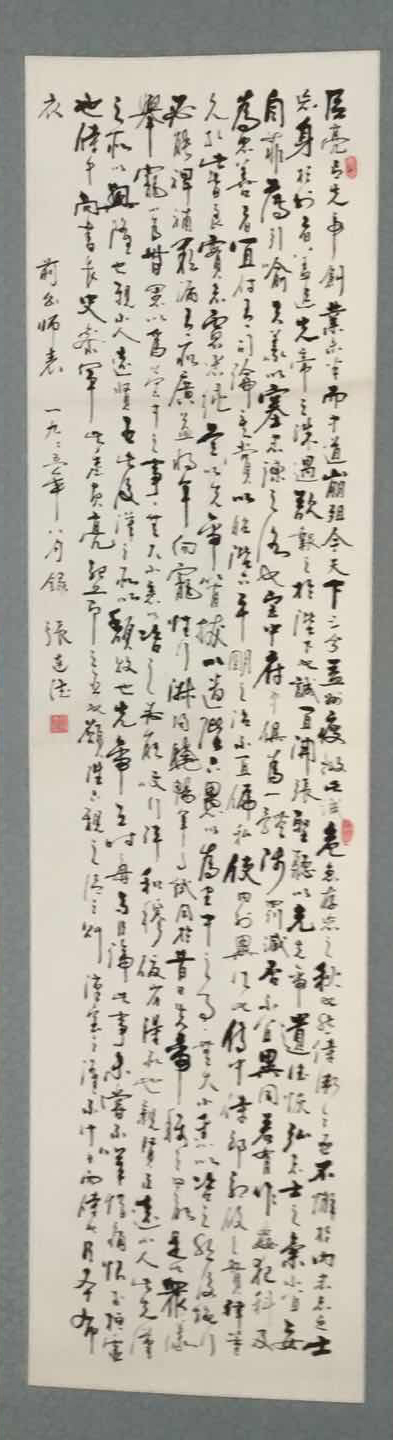 臣亮言先帝創業未半而中道崩殂今天下三分益州疲敝此誠危急存亡之秋也然侍衛之臣不懈於內忠志之士
忘身於外者蓋追先帝之殊遇欲報之於陛下也誠宜開張聖聽以光先帝遺德恢弘志士之氣不宜妄
自菲薄引喻失義以塞忠諫之路也宮中府中俱為一體陟罰臧否不宜異同若有作姦犯科及
為忠善者宜付有司論其賞以昭陛下平明之治不宜偏私使內外異法也侍中侍郎郭攸之費禕董
允等此皆良實志慮忠純是以先帝簡拔以遺陛下愚以為宮中之事無大小悉以咨之然後施行
必能裨補闕漏有所廣益將軍向寵性行淑均曉暢軍事試用於昔日先帝稱之曰能是以眾議
舉寵為督愚以為營中之事事無大小悉以咨之必能使行陣和穆優劣得所也親賢臣遠小人此先漢
之所以興隆也親小人遠賢臣此後漢之所以傾頹也先帝在時每與臣論此事未嘗不嘆息痛恨於桓靈
也侍中尚書長史參軍此悉貞亮死節之臣也願陛下親之信之則漢室之隆可計日而待也臣本布
衣
前出師表 一九 五年八月錄 張